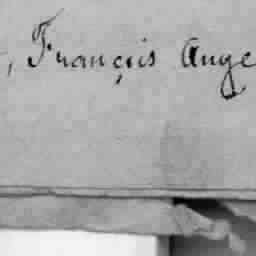 , François Ange